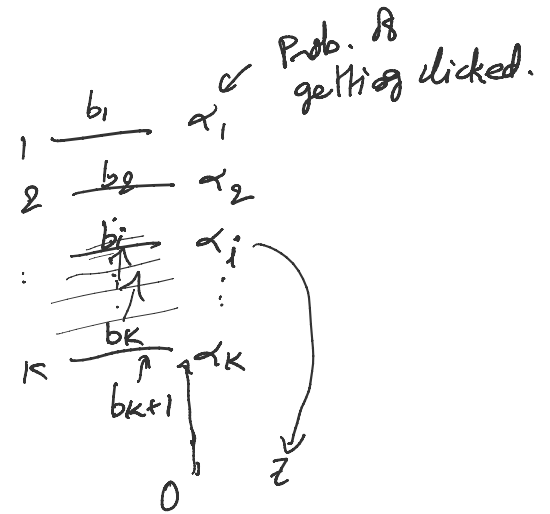 Prob. of
getting clicked.
1 b1 α1
2 b2 α2
bi αi
: : :
K bK αK
bK+1
0 z